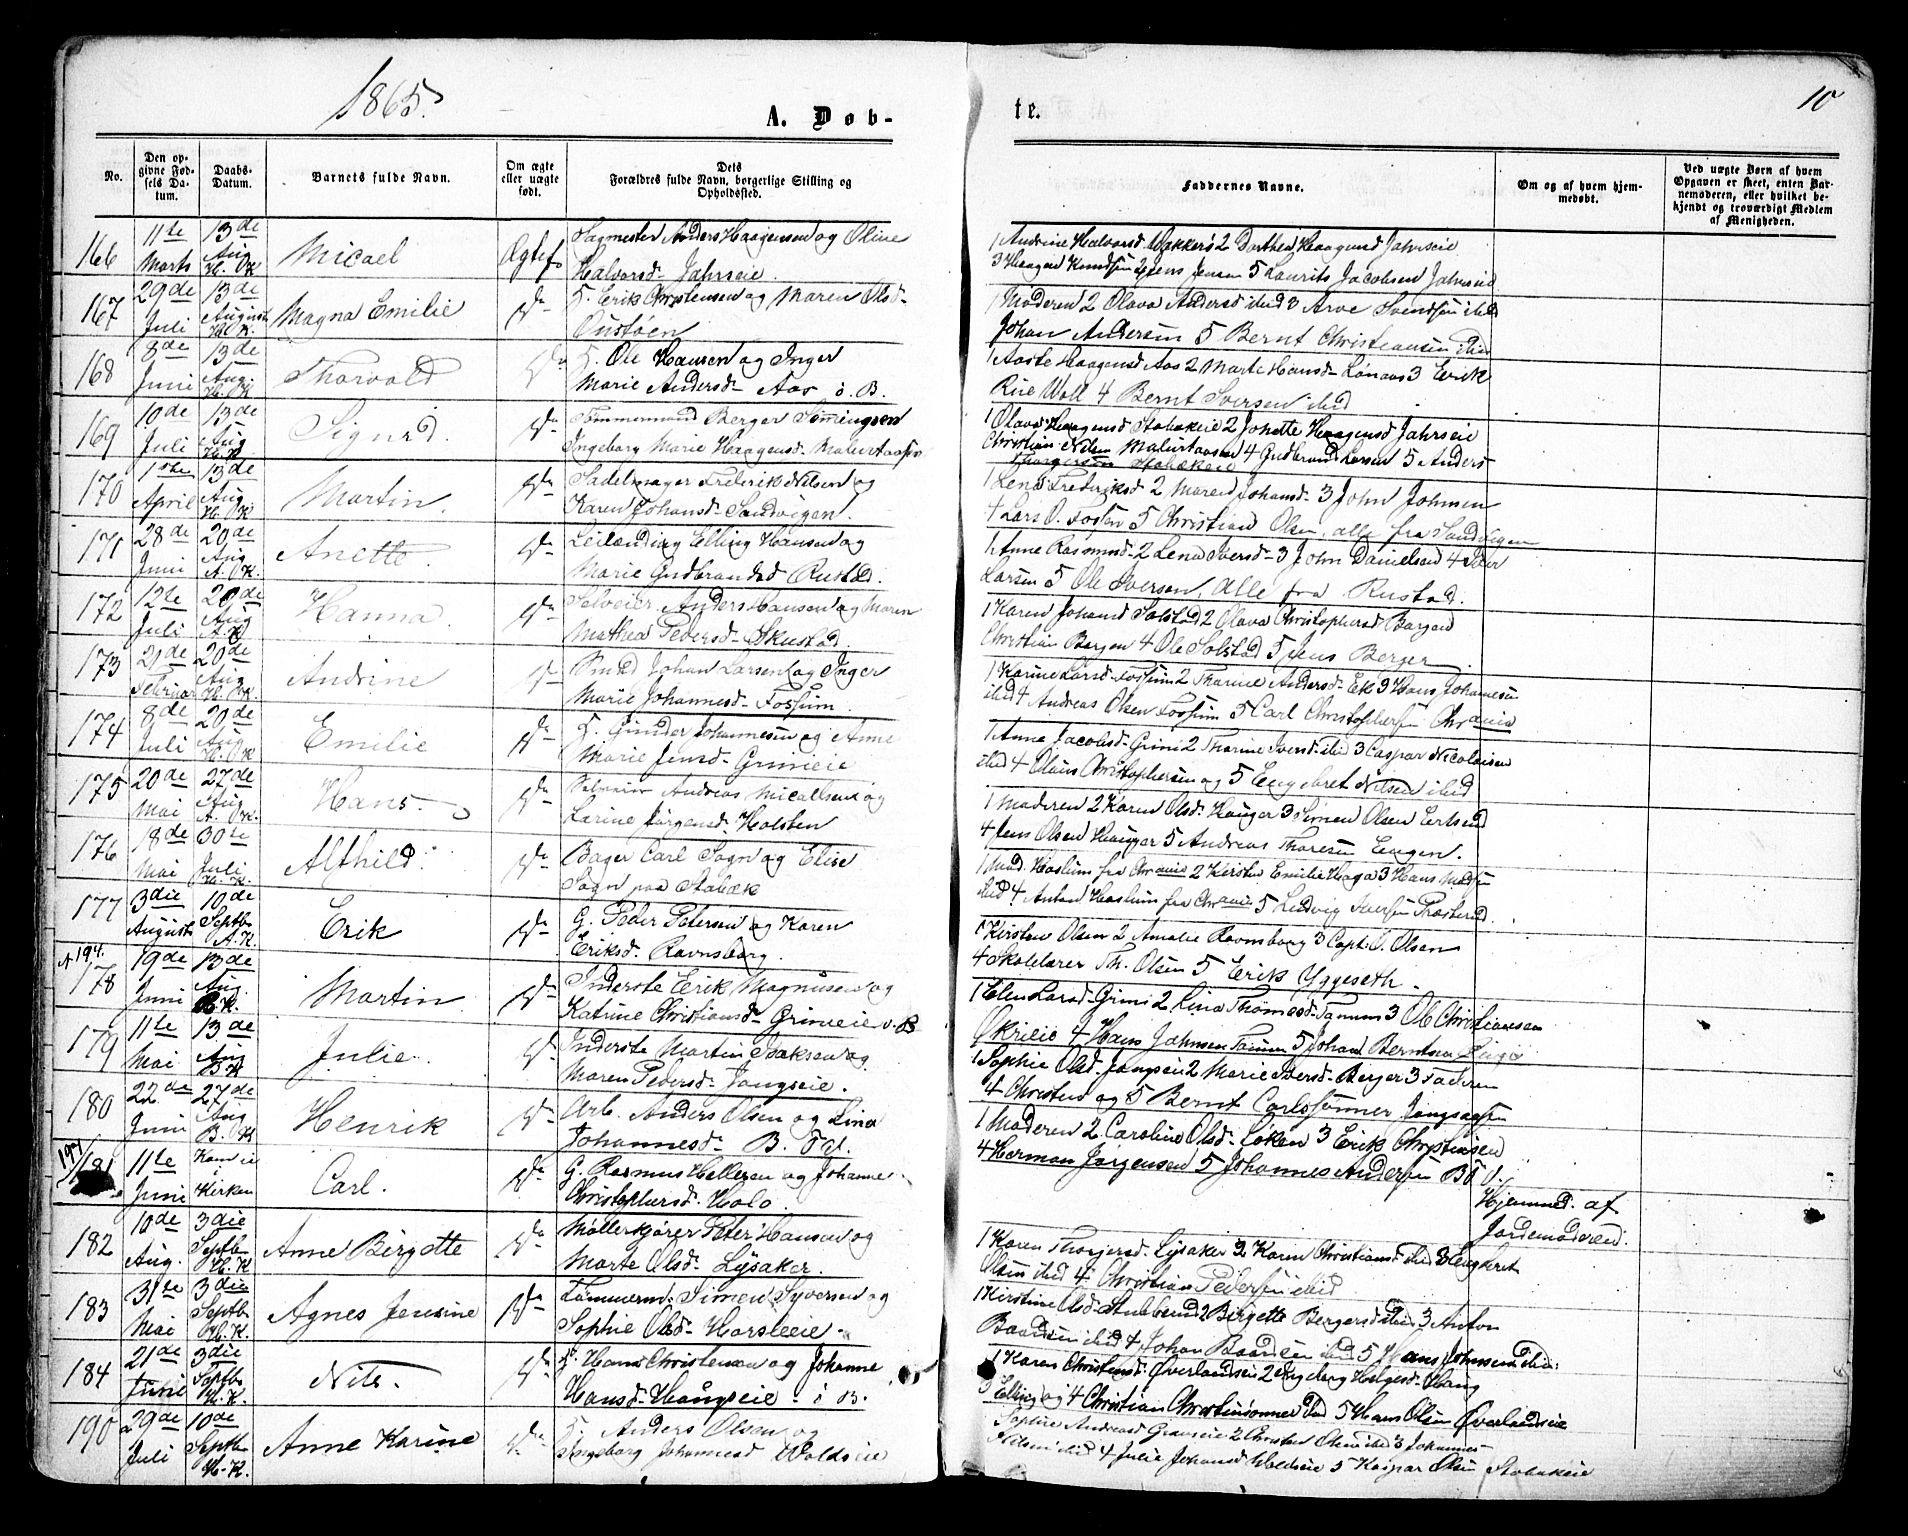 1865.
A. Døb-
te.
10
No.
Den op-
givne Fød-
sels Da-
tum.
Daabs-
Datum.
Barnets fulde Navn.
Om ægte
eller uægte
født.
Dets
Forældres fulde Navn, borgerlige Stilling og
Opholdssted.
Faddernes Navne.
Om og af hvem hjem-
medøbt.
Ved uægte Børn af hvem
Opgaven er skeet, enten Bar-
nemoderen, eller hvilket be-
kjendt og troværdigt Medlem
af Menigheden.
166
11te Marts
13de Aug H. K
Micael
Ægtef
Sagmester Anders Haagensen og Oline
Halvorsd- Jahrseie.
1 Andrine Halvorsd- Bakkerö 2 Dorthea Haagensd Jahrseie
3 Haagen Knudsen 4 Jens Jensen 5 Laurits Jacobsen Jahrseie
167
29de Juli
13de August H. K.
Magna Emilie
Do
H. Erik Christensen og Maren Olsd-
Oustöen
1 Moderen 2 Olava Andersd ibid 3 Arve Svendsen ibid
Johan Andersen 5 Bernt Christiansen ibid
168
8de Juni
13de Aug. H. K
Thorvald
Do
H. Ole Hansen og Inger
Marie Andersd- Aas i B.
1 Aaste Haagensd Aas 2 Marte Hansd- Lönaas 3 Erick
Rue Woll 4 Bernt Iversen ibid
169
10de Juli
13de Aug H. K
Sigurd
Do
Tömmermand Berger Simingsen
Ingeborg Marie Haagensd- Malurtaasen
1 Olava Haagensd Stabækeie 2 Jonette Haagensd Jahrseie
Christian Nilsen Malurtaasen 4 Gudbrand Larsen 5 Anders
Thorgersen Stabækeie
170
1ste April
13de Aug H. K
Martin.
Do
Sadelmager Frederik Nilsen og
Karen Johansd- Sandvigen.
1 Lena Frederiksd 2 Maren Johansd- 3 John Johnsen
4 Lars O. Fossen 5 Christian Olsen, alle fra Sandvigen
171
28de Juni
20de Aug A. K.
Anette.
Do
Leilænding Elling Hansen og
Marie Gudbrandsd Rustad.
1 Anne Rasmusd- 2 Lena Iversd- 3 John Danielsen 4 Iver
Larsen 5 Ole Iversen, Alle fra Rustad.
172
12te Juli
20de Aug A. K
Hanna
Do
Selveier Anders Hansen og Maren
Mathea Pedersd- Skustad
1 Karen Johansd Solstad 2 Olava Christophersd Bergen
Christian Bergen 4 Ole Solstad 5 Jens Berger
173
21de Februar
20de Aug H. K.
Andrine
Do
Smed Johan Larsen og Inger
Marie Johannesd- Fossum.
1 Karine Larsd- Fossum 2 Tharine Andersd- Ek 3 Hans Johannesen
ibid 4 Andreas Olsen Fossum 5 Carl Christophersen Chrania
174
8de Juli
20de Aug H. K.
Emilie
Do
H. Gunder Johannesen og Anne
Marie Jensd- Grinieie
1 Anne Jacobsd- Grini 2 Tharine Iversd- ibid 3 Caspar Nicolaisen
ibid 4 Olaus Christophersen og 5 Engebret Nilsen ibid
175
20de Mai
27de Aug A. K.
Hans.
Do
Selveier Andreas Micallsen og
Karine Jörgensd. Holsten
1 Moderen 2 Karen Olsd- Hauger 3 Simen Olsen
4 Jens Olsen Hauger 5 Andreas Thoresen Engen.
176
18de Mai
30te Juli H. K.
Alfhild.
Do
Bager Carl Sogn og Elise
Sogn paa Stabæk
1 Mad. Haslum fra Chrania 2 Kirsten Emilie Haga 3 Hans
ibid 4 Anton Haslum fra Chrania 5 Ludvig Iversen
177
3die August
10de Septbr A. K.
Erik
Do
G. Peder Petersen og Karen
Eriksd. Ravnsborg.
1 Kirsten Olsen 2 Amalie Ravnsborg 3 Capt. O. Olsen
4 Skolelærer Th. Olsen 5 Erik Yggeseth.
194.
178
19de Juni
13de Aug. B. K.
Martin
Do
Inderste Erik Magnusen og
Katrine Christiansd- Grinieie v. B
1 Elen Larsd- Grini 2 Lina Thomesd- Tanum 3 Ole Christiansen
Ökrieie 4 Hans Jahnsen Tanum 5 Johan Berntsen
179
11te Mai
13de Aug B K
Julie.
Do
Inderste Martin Isaksen og
Maren Pedersd- Jongseie.
1 Sophie Olsd- Jongseie 2 Marie Iversd- Berger 3 Faderen
4 Christen og 5 Bernt Carlssönner Jongsaasen
180
22de Juni
27de Aug B. K
Henrik
Do
Arb. Anders Olsen og Lina
Johannesd- B. Vel.
1 Moderen 2 Caroline Olsd- Löken 3 Erik Christensen
4 Herman Jörgensen 5 Johannes Andersen B V.
197
181
11te Juni
Kom ei i Kirken
Carl.
Do
G. Rasmus Hellesen og Johanne
Christophersd- Holo.
Hjemmed. af
Jordemoderen.
182
10de Aug.
3die Septbr H. K
Anne Birgette
Do
Möllerkjörer Peter Hansen og
Marte Olsd- Lysaker.
1 Karen Thorgersd- Lysaker 2 Karen Christiansd- ibid 3 Engebret
Olsen ibid 4 Christian Pedersen ibid
183
31te Mai
3die Septbr H. K.
Agnes Jensine
Do
Tömmerm. Simen Syversen og
Sophie Olsd- Horsleeie.
1 Kirstine Olsd- Stubberud 2 Birgette Bergersd ibid 3 Anton
Baardsen ibid 4 Johan Baardsen ibid 5 Hans Johnsen ibid.
184
21de Juni
3die Septbr H. K.
Nils.
Do
H. Hans Christensen og Johanne
Hansd- Haugseie i B.
1 Karen Christensd- Överlandseie 2 Ingeborg Helgesd- Haug
3 Elling og 4 Christian Christensönner ibid 5 Hans Olsen Överlandseie
190
29de Juli
10de Septbr H. K.
Anne Karine
Do
H. Anders Olsen og
Ingeborg Johannesd Woldseie
Sophie Andreasd Gravseie 2 Christen Olsen ibid 3 Johannes
Nilsen ibid 4 Julie Johansd Woldseie 5 Kaspar Olsen Stabækeie